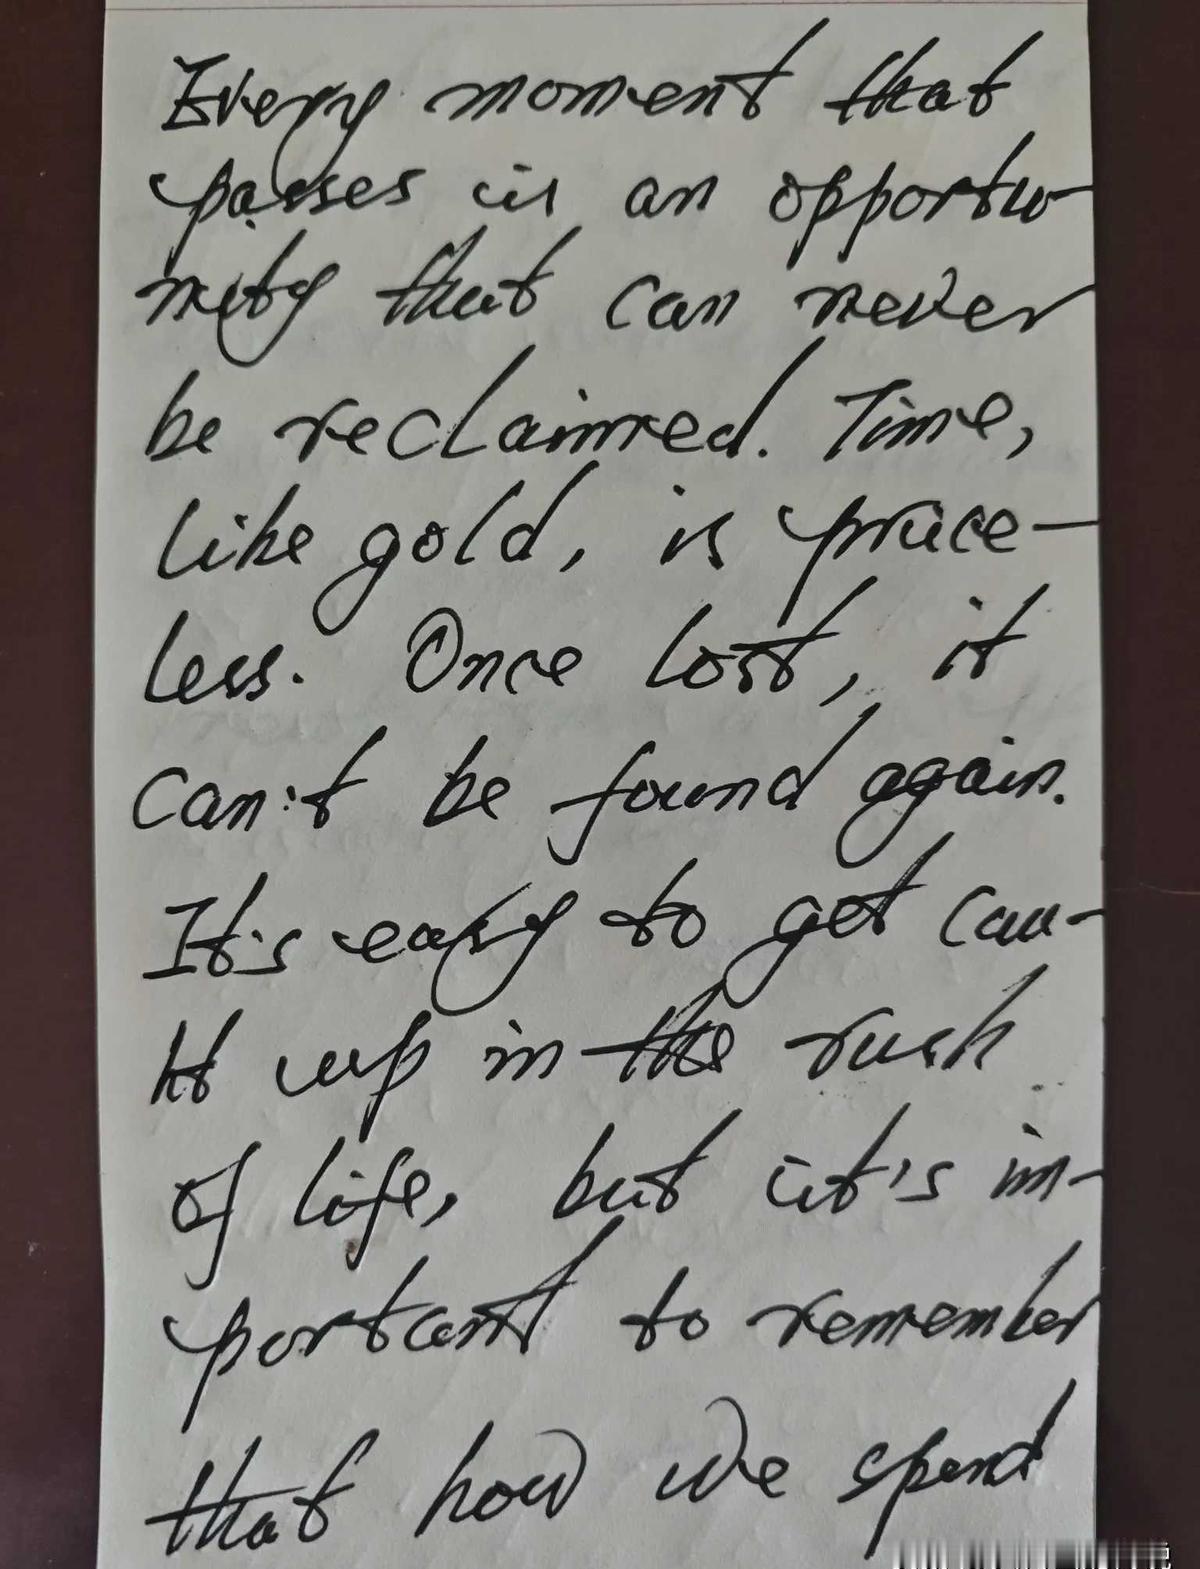 Every moment that
passes is an opportu-
nity that can never
be reclaimed. Time,
like gold, is price-
less. Once lost, it
can't be found again.
It's easy to get cau-
ht up in the rush
of life, but it's im-
portant to remember
that how we spend